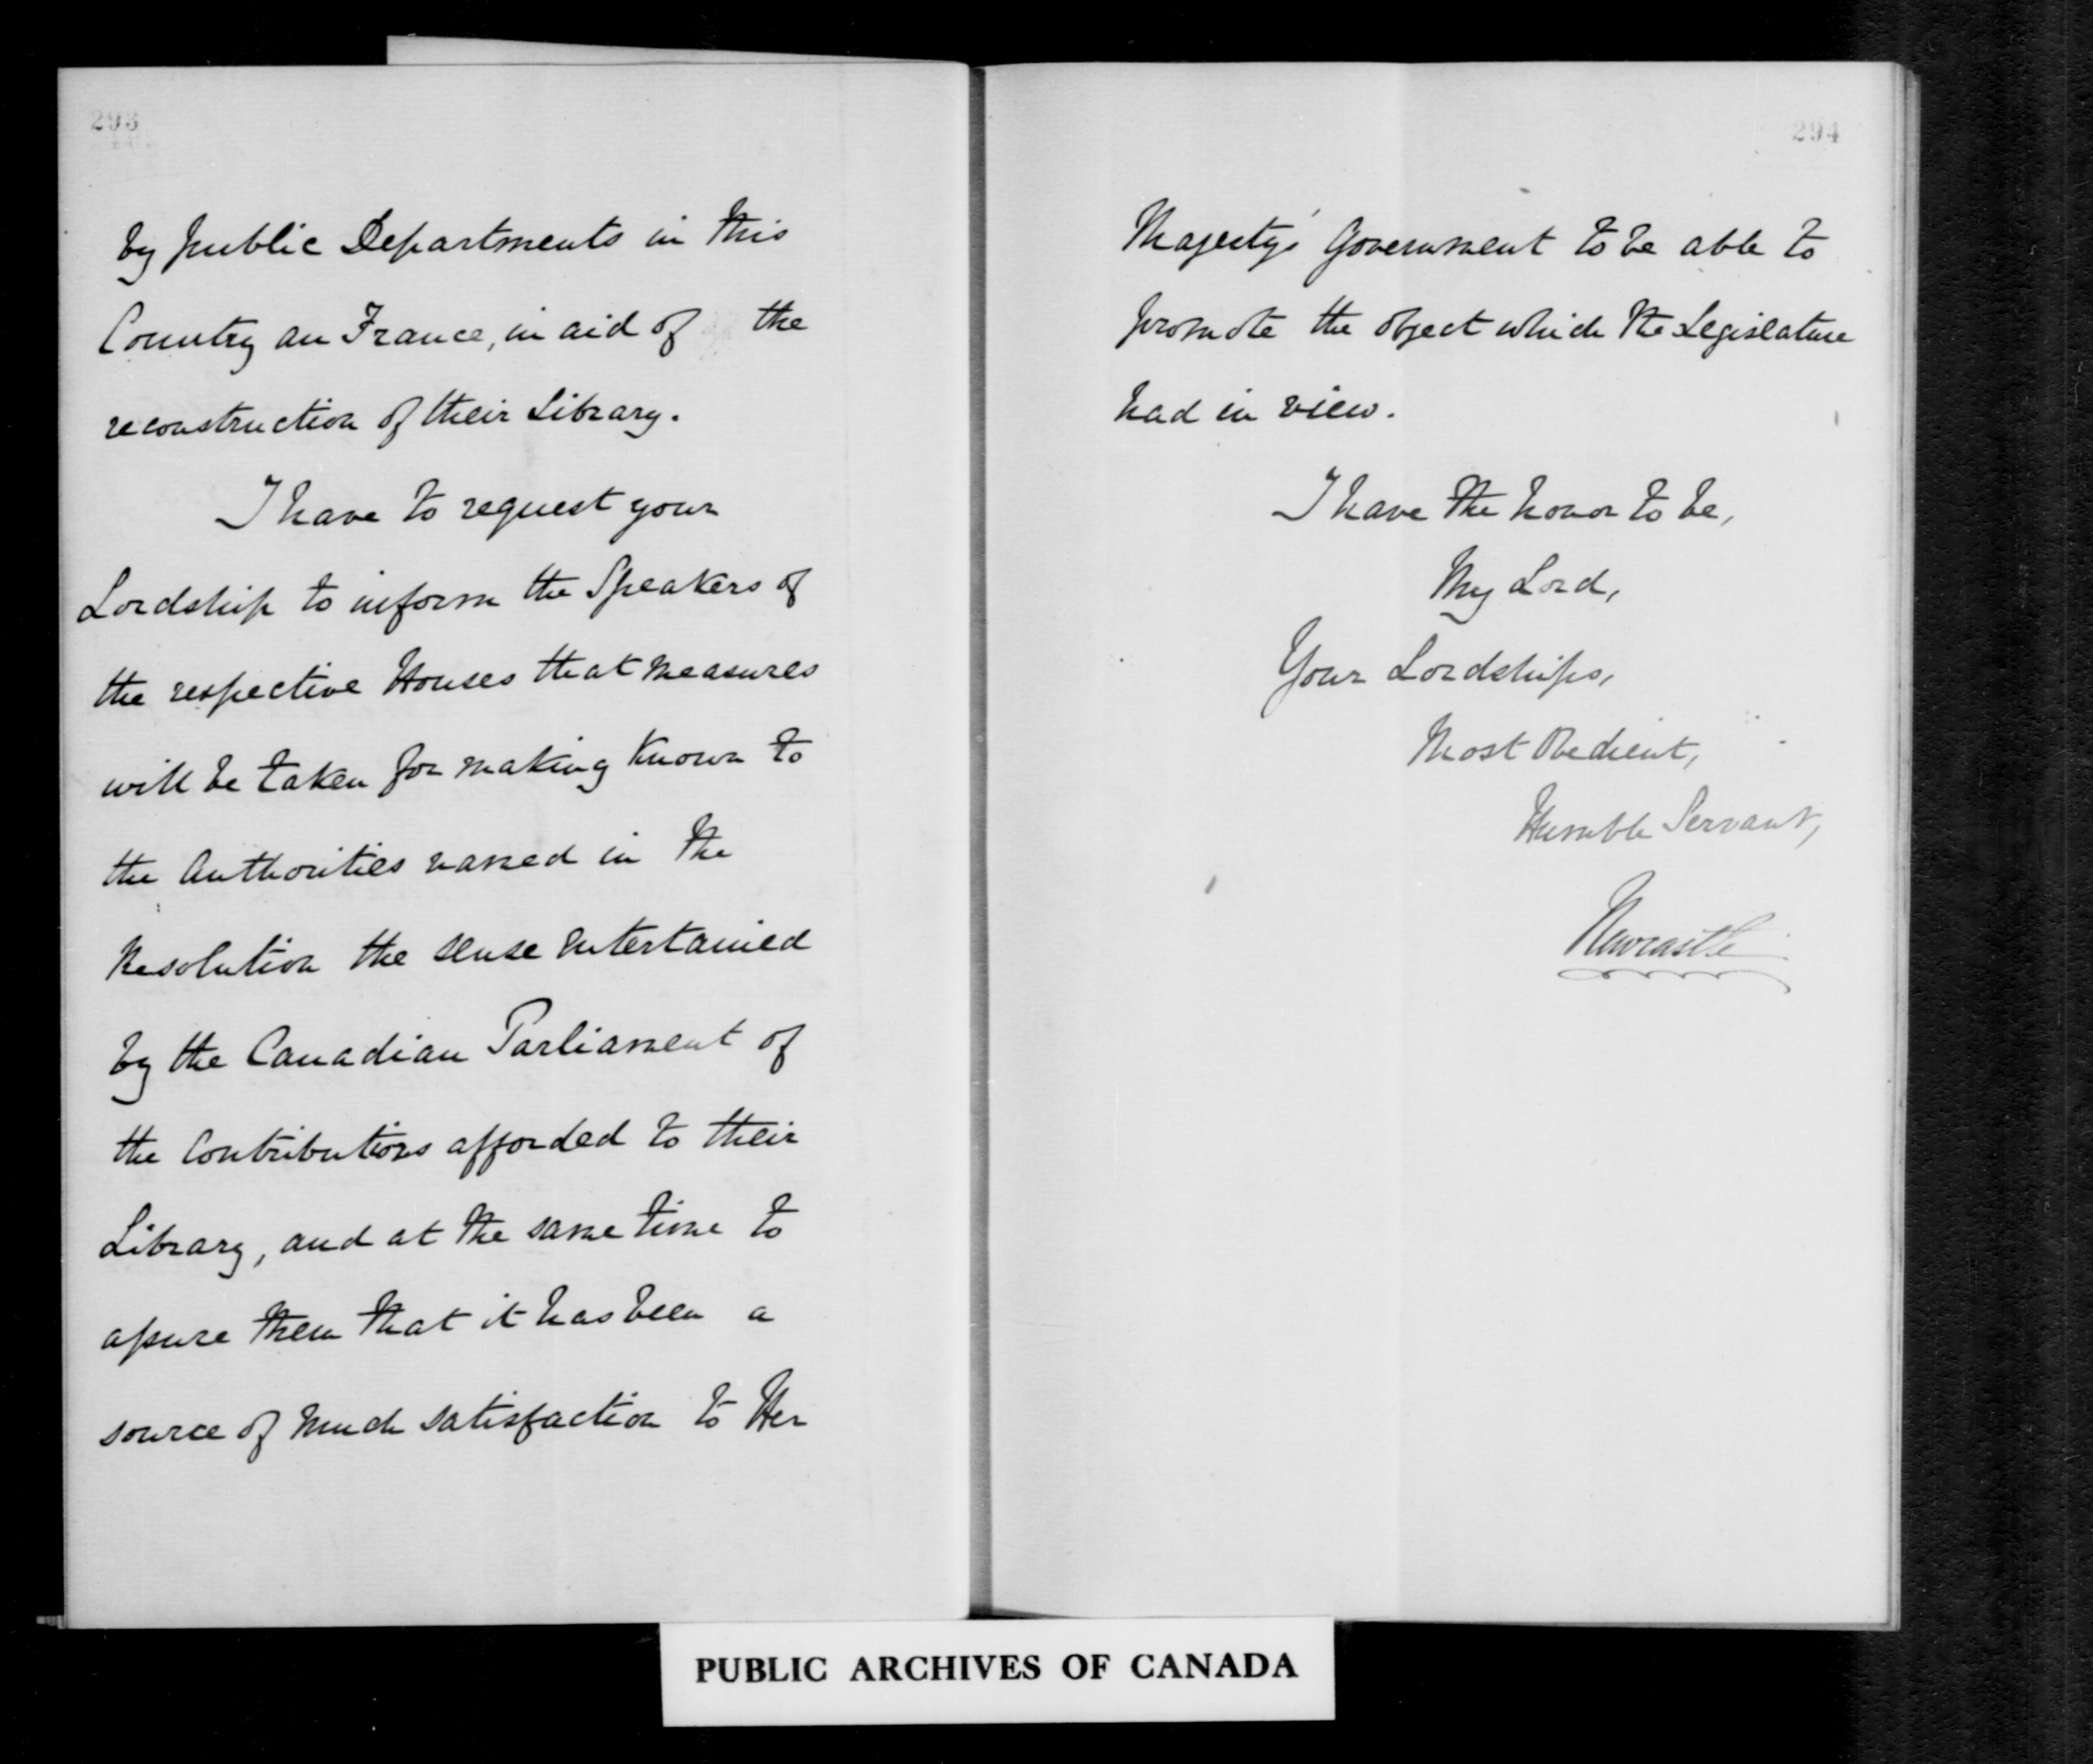 293
by public Departments in this
Country an France, in aid of the
reconstruction of their Library.
I have to request your
Lordship to inform the Speakers of
the respective Houses that measures
will be taken for making known to
the Authorities named in the
Resolution the sense entertained
by the Canadian Parliament of
the Contributions afforded to their
Library, and at the same time to
assure them that it has been a
source of much satisfaction to Her
294
Majesty's Government to be able to
promote the object which the Legislature
had in view.
I have the honor to be,
My Lord,
Your Lordships,
Most Obedient,
Humble Servant,
Newcastle
PUBLIC ARCHIVES OF CANADA